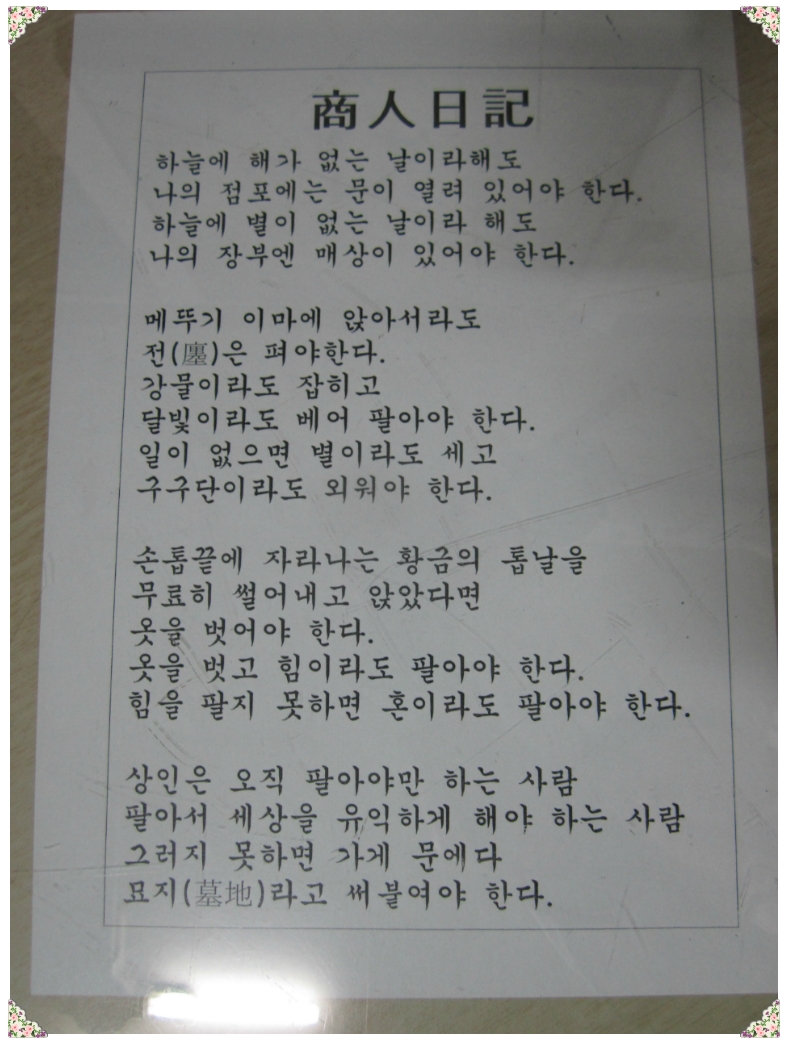 商人日記
하늘에 해가 없는 날이라해도
나의 점포에는 문이 열려 있어야 한다.
하늘에 별이 없는 날이라 해도
나의 장부엔 매상이 있어야 한다.
메뚜기 이마에 앉아서라도
전(廛)은 펴야한다.
강물이라도 잡히고
달빛이라도 베어 팔아야 한다.
일이 없으면 별이라도 세고
구구단이라도 외워야 한다.
손톱끝에 자라나는 황금의 톱날을
무료히 썰어내고 앉았다면
옷을 벗어야 한다.
옷을 벗고 힘이라도 팔아야 한다.
힘을 팔지 못하면 혼이라도 팔아야 한다.
상인은 오직 팔아야만 하는 사람
팔아서 세상을 유익하게 해야 하는 사람
그러지 못하면 가게 문에다
묘지(墓地)라고 써붙여야 한다.